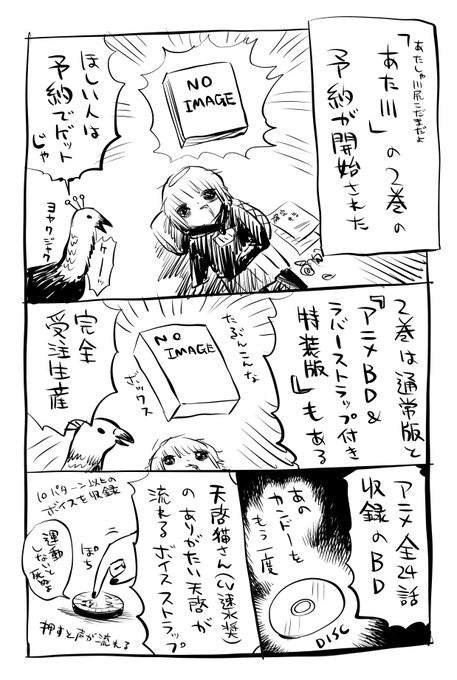 あたしゃ川尻こだまだよ
「あた川」の2巻の
予約が開始された
NO
IMAGE
ほしい人は
予約でゲット
じゃ
ヨヤクジャク
ケーッ
2巻は通常版と
『アニメBD&
ラバーストラップ付き
特装版』もある
NO
IMAGE
たぶんこんな
ボックス
完全
受注生産
アニメ全24話
収録のBD
あの
カンドーを
もう一度
DISC
天啓猫さん(CV速水奨)
のありがたい天啓が
流れるボイスストラップ
10パターン以上の
ボイスを収録
ぽち
運動
しないと
死ぬよ
押すと声が流れる